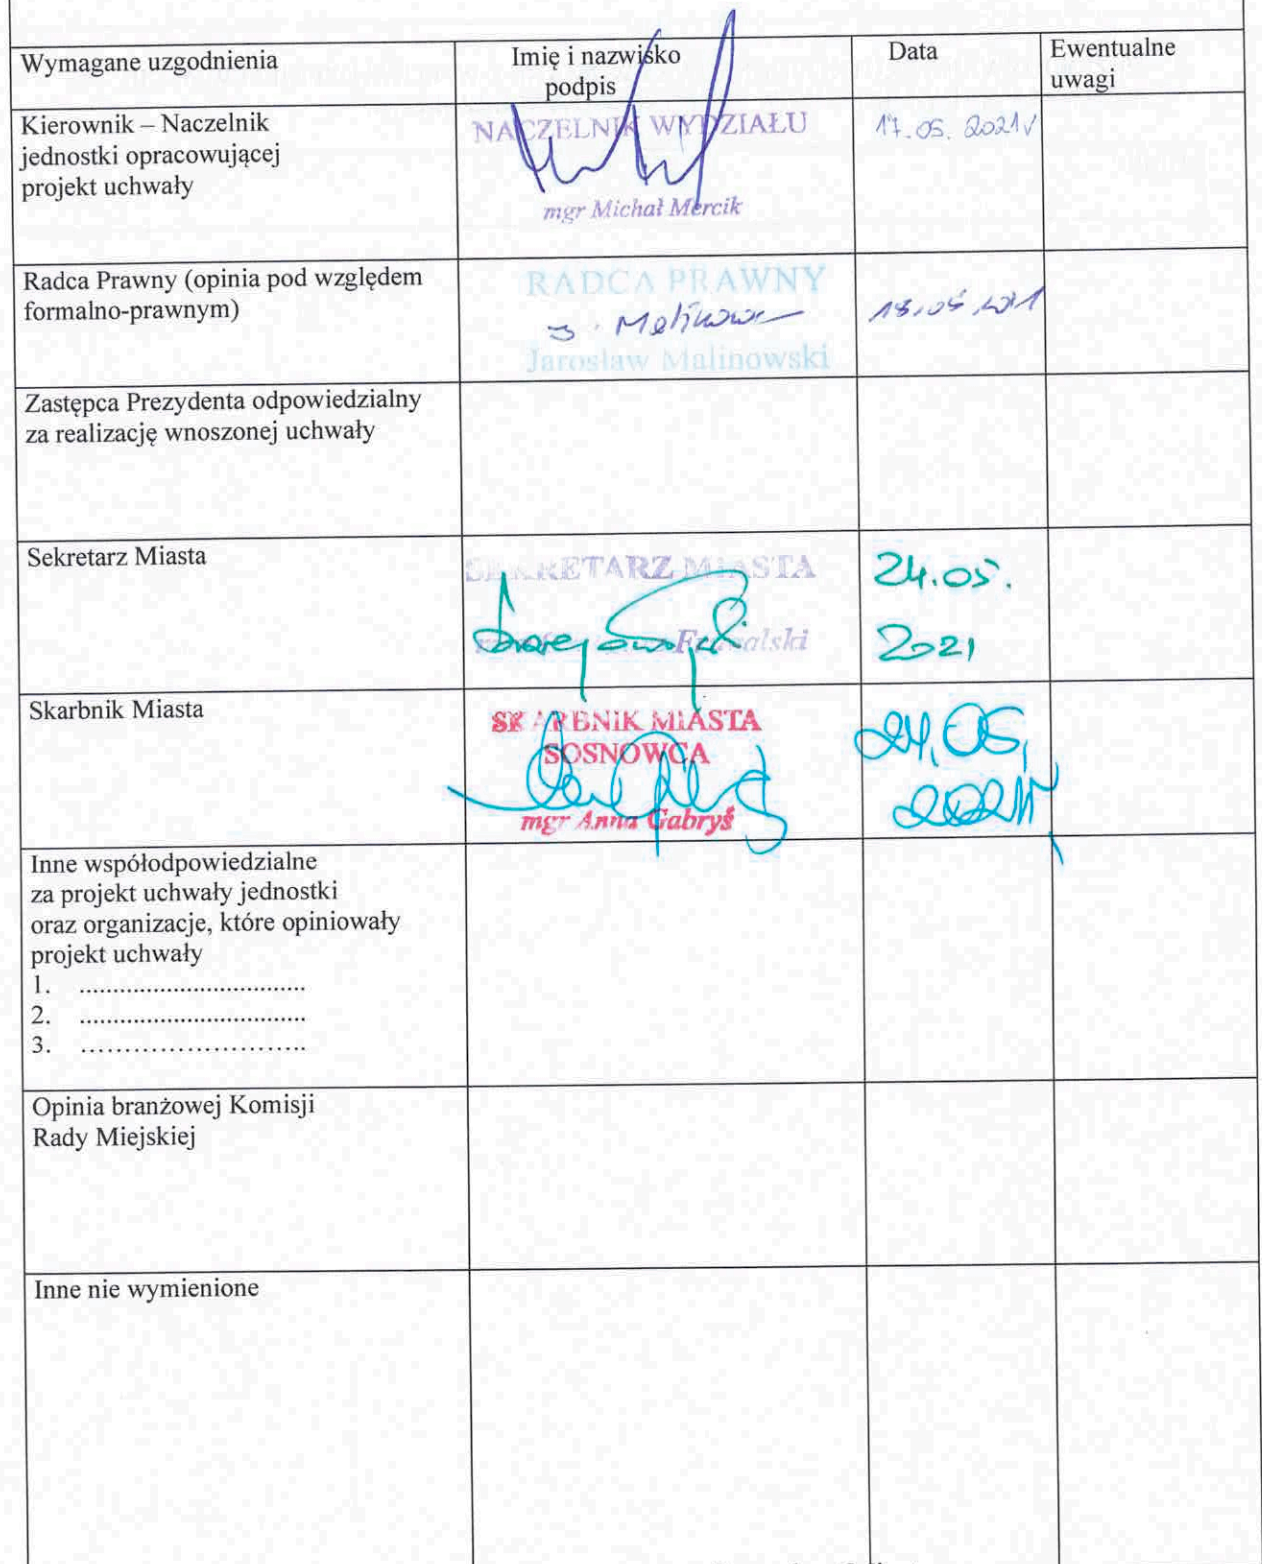 Wymagane uzgodnienia
Imię i nazwisko
podpis
Data
Ewentualne
uwagi
Kierownik – Naczelnik
jednostki opracowującej
projekt uchwały
NACZELNIK WYDZIAŁU
mgr Michał Mercik
17.05.2021
Radca Prawny (opinia pod względem
formalno-prawnym)
RADCA PRAWNY
Jarosław Malinowski
18.05.2021
Zastępca Prezydenta odpowiedzialny
za realizację wnoszonej uchwały
Sekretarz Miasta
SEKRETARZ MIASTA
24.05.
2021
Skarbnik Miasta
SKARBNIK MIASTA
SOSNOWCA
mgr Anna Gabryś
24.05.
2021
Inne współodpowiedzialne
za projekt uchwały jednostki
oraz organizacje, które opiniowały
projekt uchwały
1. ..................................
2. ..................................
3. ..................................
Opinia branżowej Komisji
Rady Miejskiej
Inne nie wymienione